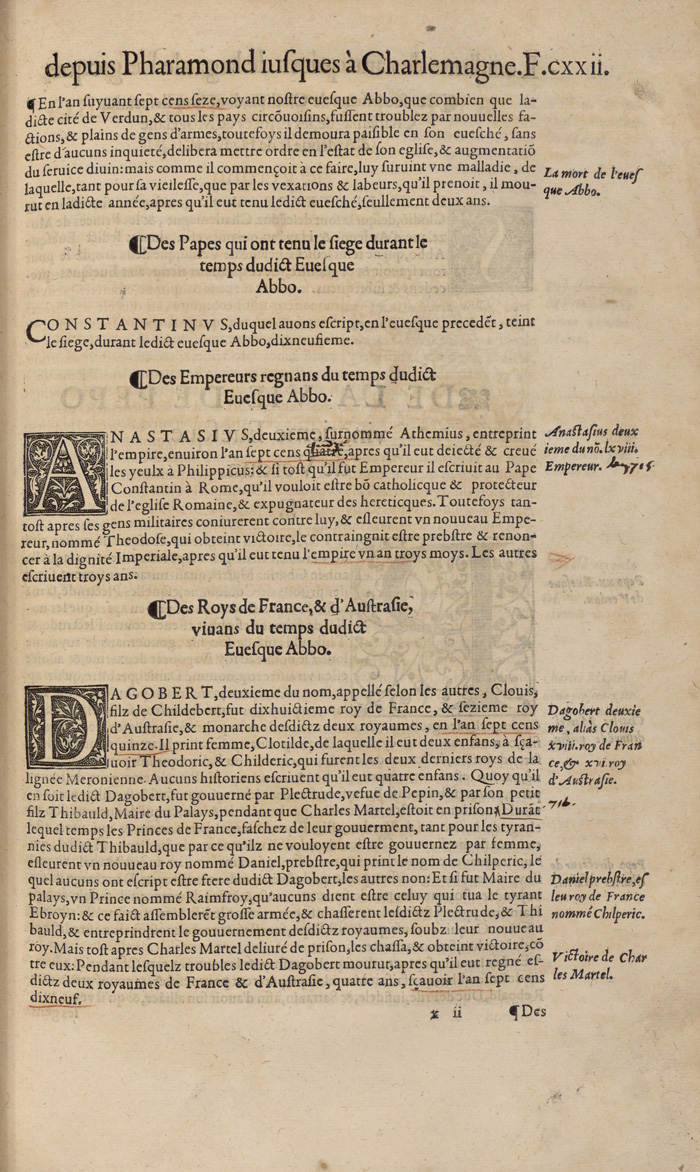 depuis Pharamond iusques à Charlemagne.F.cxxii.
¶En l'an suyuant sept cens seze, voyant nostre euesque Abbo, que combien que la-
dicte cité de Verdun,& tous les pays circõuoisins, fussent troublez par nouuelles fa-
ctions,& plains de gens d'armes, toutefoys il demoura paisible en son euesché, sans
estre d'aucuns inquieté, delibera mettre ordre en l'estat de son eglise,& augmentatiõ
du seruice diuin: mais comme il commençoit à ce faire, luy suruint vne malladie, de
laquelle, tant pour sa vieilesse, que par les vexations & labeurs, qu'il prenoit, il mou-
rut en ladicte année, apres qu'il eut tenu ledict euesché, seullement deux ans.
La mort de l'eues
que Abbo.
¶Des Papes qui ont tenu le siege durant le
temps dudict Euesque
Abbo.
CONSTANTINVS, duquel auons escript, en l'euesque precedẽt, teint
le siege, durant ledict euesque Abbo, dixneufieme.
¶Des Empereurs regnans du temps dudict
Euesque Abbo.
ANASTASIVS, deuxieme, surnommé Athemius, entreprint
l'empire, enuiron l'an sept cens quatre, apres qu'il eut deiecté & creué
les yeulx à Philippicus: & si tost qu'il fut Empereur il escriuit au Pape
Constantin à Rome, qu'il vouloit estre bõ catholicque & protecteur
de l'eglise Romaine,& expugnateur des hereticques. Toutefoys tan-
tost apres ses gens militaires coniurerent contre luy,& esleurent vn nouueau Empe-
reur, nommé Theodose, qui obteint victoire, le contraingnit estre prebstre & renon-
cer à la dignité Imperiale, apres qu'il eut tenu l'empire vn an troys moys. Les autres
escriuent troys ans.
Anastasius deux
ieme du nõ. lxviii.
Empereur. 715
¶Des Roys de France,& d'Austrasie,
viuans du temps dudict
Euesque Abbo.
DAGOBERT, deuxieme du nom, appellé selon les autres, Clouis,
filz de Childebert, fut dixhuictieme roy de France, & sezieme roy
d'Austrasie,& monarche desdictz deux royaumes, en l'an sept cens
quinze. Il print femme, Clotilde, de laquelle il eut deux enfans, à sça-
uoir Theodoric,& Childeric, qui furent les deux derniers roys de la
lignée Meronienne. Aucuns historiens escriuent qu'il eut quatre enfans. Quoy qu'il
en soit ledict Dagobert, fut gouuerné par Plectrude, vefue de Pepin,& par son petit
filz Thibauld, Maire du Palays, pendant que Charles Martel, estoit en prison, Durãt
lequel temps les Princes de France, faschez de leur gouuerment, tant pour les tyran-
nies dudict Thibauld, que par ce qu'ilz ne vouloyent estre gouuernez par femme,
esleurent vn nouueau roy nommé Daniel, prebstre, qui print le nom de Chilperic, le
quel aucuns ont escript estre frere dudict Dagobert, les autres non: Et si fut Maire du
palays, vn Prince nommé Raimfroy, qu'aucuns dient estre celuy qui tua le tyrant
Ebroyn: & ce faict assemblerẽt grosse armée,& chasserent lesdictz Plectrude,& Thi
bauld,& entreprindrent le gouuernement desdictz royaumes, soubz leur nouueau
roy. Mais tost apres Charles Martel deliuré de prison, les chassa,& obteint victoire, cõ
tre eux: Pendant lesquelz troubles ledict Dagobert mourut, apres qu'il eut regné es-
dictz deux royaumes de France & d'Austrasie, quatre ans, sçauoir l'an sept cens
dixneuf.
Dagobert deuxie
me, aliàs Clouis
xviii. roy de Fran
ce,& xvi roy
d'Austrasie.
716.
Daniel prebstre, es
leu roy de France
nommé Chilperic.
Victoire de Char
les Martel.
x ii
¶Des